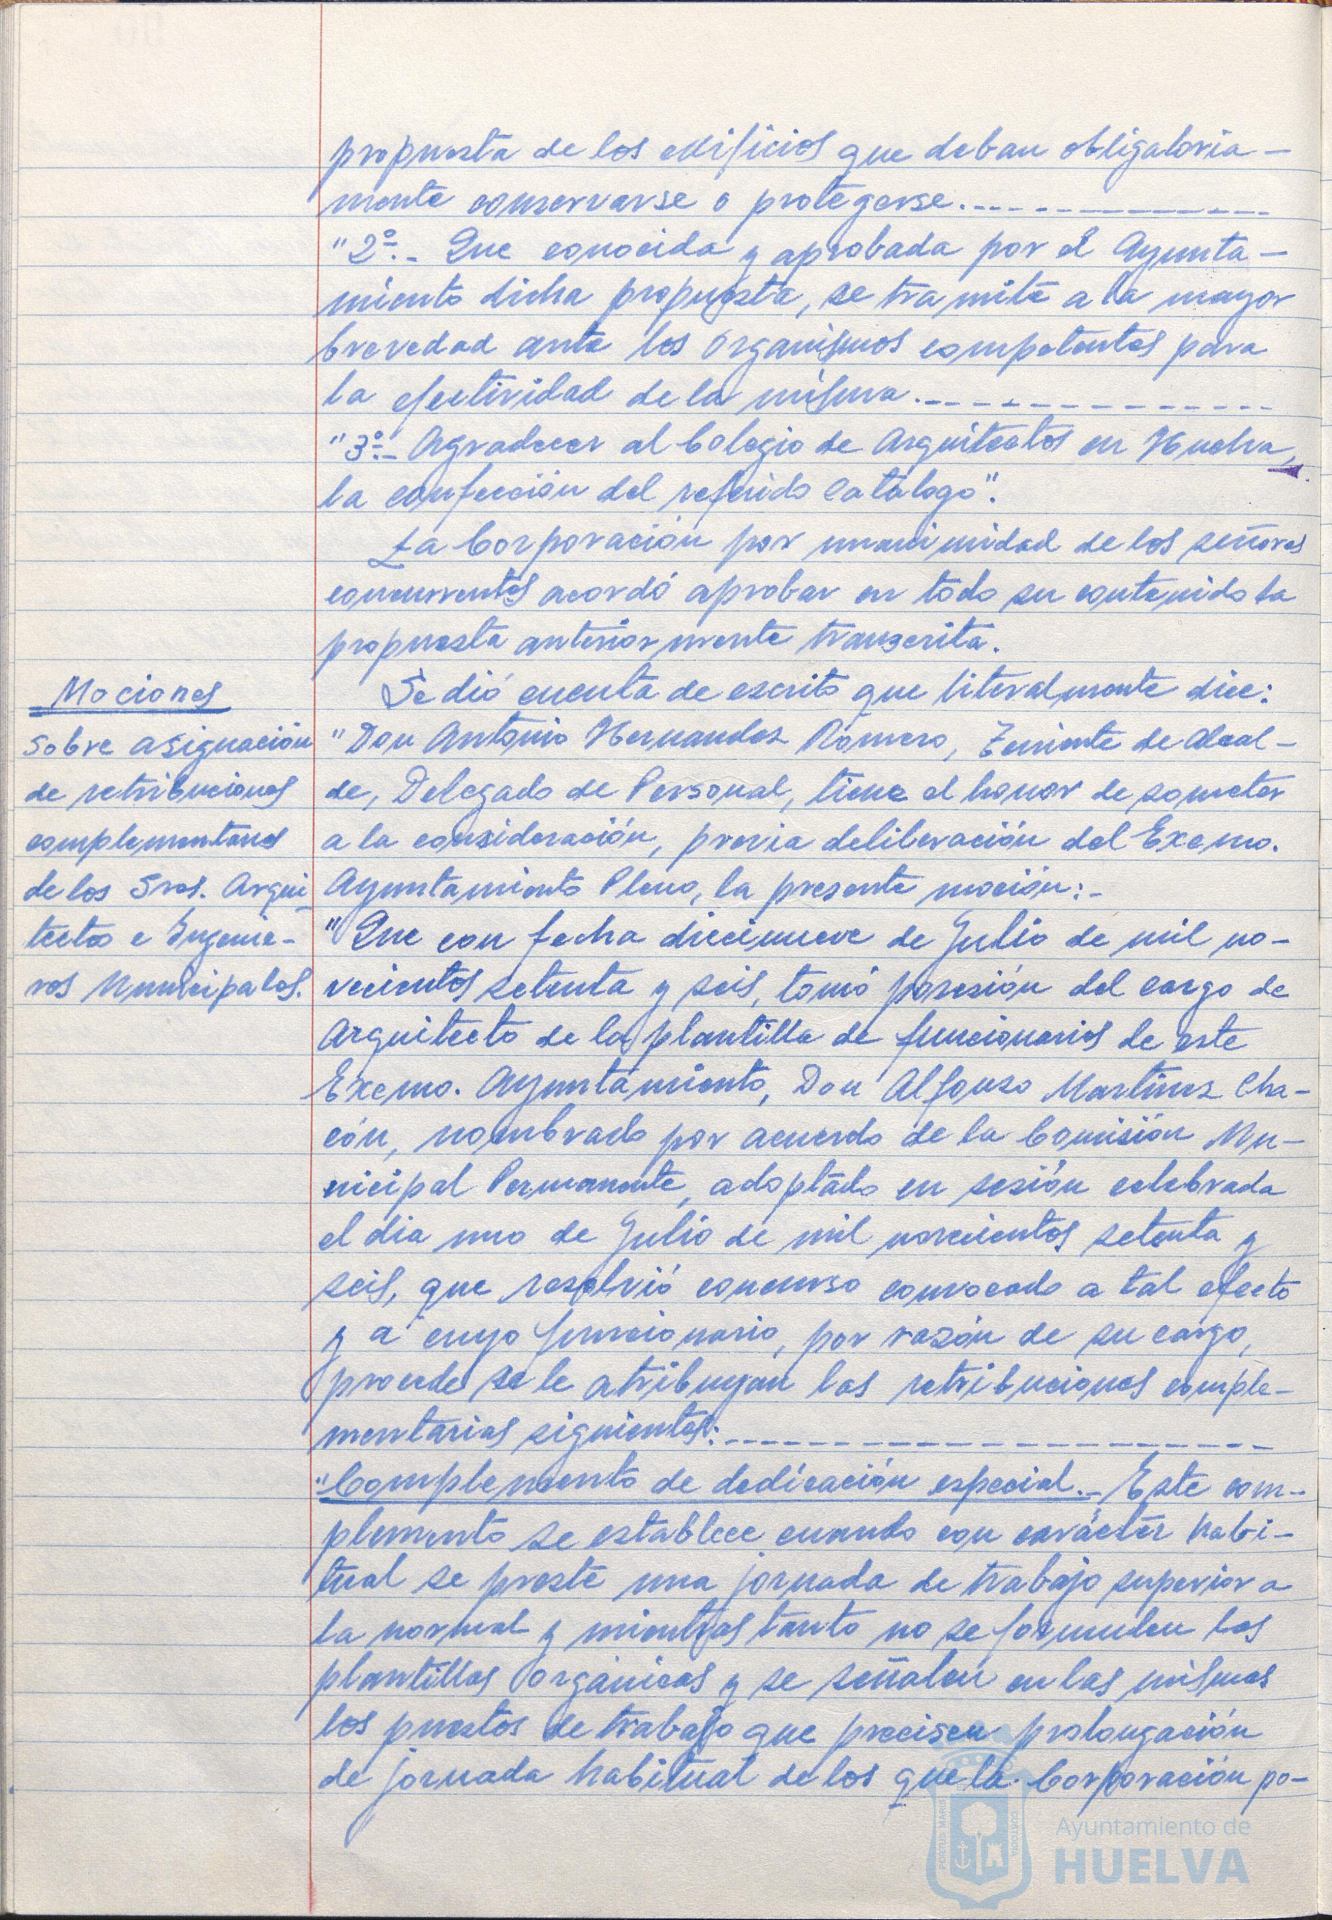 propuesta de los edificios que deban obligatoria-
mente conservarse o protegerse.
"2º.- Que conocida y aprobada por el Ayunta-
miento dicha propuesta, se tramite a la mayor
brevedad ante los organismos competentes para
la efectividad de la misma.
"3º.- Agradecer al Colegio de Arquitectos en Huelva,
la confección del referido catálogo".
La Corporación por unanimidad de los señores
concurrentes acordó aprobar en todo su contenido la
propuesta anteriormente transcrita.
Mociones
Sobre asignación
de retribuciones
complementarias
de los Sres. Arqui-
tectos e Ingenie-
ros Municipales.
Se dió cuenta de escrito que literalmente dice:
"Don Antonio Hernandez Romero, Teniente de Alcal-
de, Delegado de Personal, tiene el honor de someter
a la consideración, previa deliberación del Excmo.
Ayuntamiento Pleno, la presente moción:-
"Que con fecha diecinueve de Julio de mil no-
vecientos setenta y seis, tomó posesión del cargo de
Arquitecto de la plantilla de funcionarios de este
Excmo. Ayuntamiento, Don Alfonso Martinez Cha-
cón, nombrado por acuerdo de la Comisión Mu-
nicipal Permanente, adoptado en sesión celebrada
el dia uno de Julio de mil novecientos setenta y
seis, que resolvió concurso convocado a tal efecto
y a cuyo funcionario, por razón de su cargo,
procede se le atribuyan las retribuciones comple-
mentarias siguientes:
"Complemento de dedicación especial.- Este com-
plemento se establece cuando con carácter habi-
tual se preste una jornada de trabajo superior a
la normal y mientras tanto no se formulen las
plantillas orgánicas y se señalen en las mismas
los puestos de trabajo que precisen prolongación
de jornada habitual de los que la Corporación po-
PORTUS MARIS
CUSTODIA
Ayuntamiento de
HUELVA